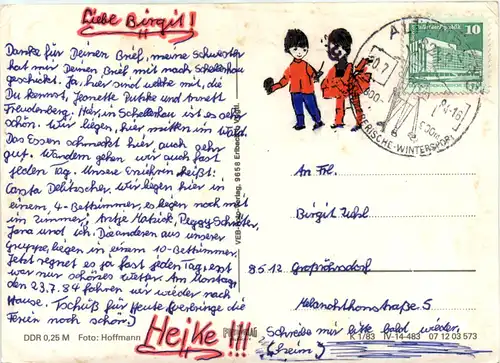 Liebe Birgit!
Danke für Deinen Brief, meine Schwester
hat mir Deinen Brief mit nach Schellerhau
geschickt. Ja, hier sind welche mit, die
Du kennst, Jeanette und Annett
Freudenberg. Hier in Schellerhau ist es sehr
schön. Wir liegen hier mitten im Wald.
Das Essen schmeckt hier auch sehr
gut. Wandern gehen wir auch fast
jeden Tag. Unsere heißt:
Carola Delitzscher. Wir liegen hier in
einem 4-Bettzimmer, es liegen noch mit
im Zimmer, Antje Peggy Schröter,
Jana und ich. Die anderen aus unserer
Gruppe, liegen in einem 10-Bettzimmer.
Jetzt regnet es ja fast jeden Tag, erst
war nur schönes Wetter. Am Montag,
den 23.7.84 fahren wir wieder nach
Hause. Tschüß für Heute (verbringe die
Ferien noch schön.)
Heike!!!
DDR 0,25 M Foto: Hoffmann
10
An Frl.
Birgit
8512 Großröhrsdorf
Melanchthonstraße 5
Schreibe mir bitte bald wieder.
K 1/83 IV-14-483 07 12 03 573